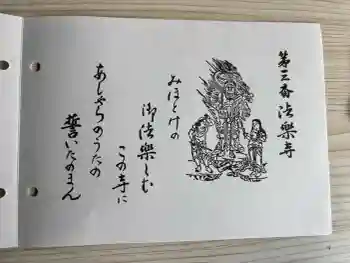 第三番法樂寺
みほとけの
御法樂しむ
この寺に
あしゃらのうたの
誓いたのまん